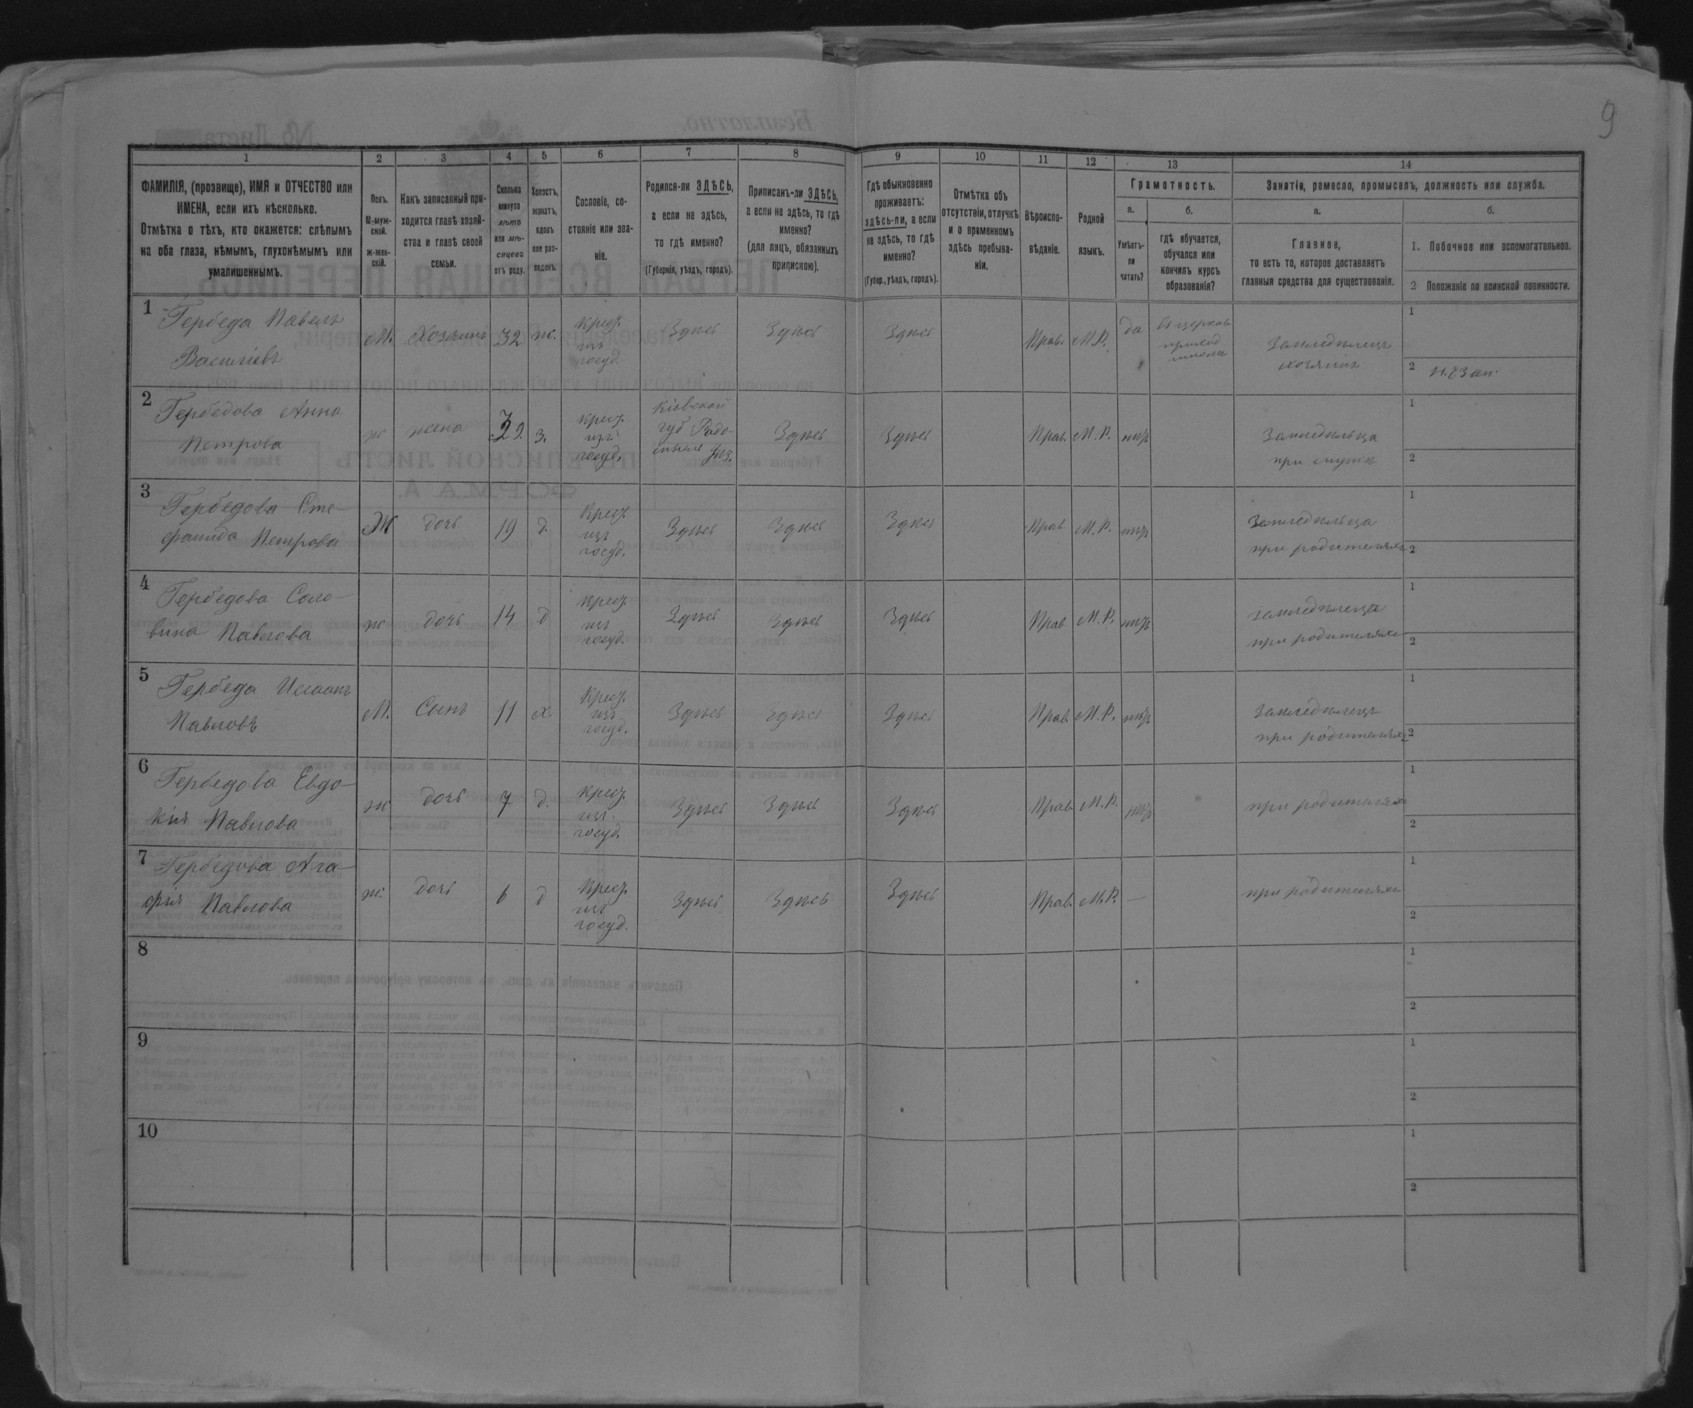 9
1
2
3
4
5
6
7
8
9
10
11
12
13
14
ФАМИЛІЯ, (прозвище), ИМЯ и ОТЧЕСТВО или
ИМЕНА, если ихъ нѣсколько.
Отмѣтка о тѣхъ, кто окажется: слѣпымъ
на оба глаза, нѣмымъ, глухонѣмымъ или
умалишеннымъ.
Полъ.
М-муж-
ской.
ж-жен-
скій.
Какъ записанный при-
ходится главѣ хозяй-
ства и главѣ своей
семьи.
Сколько
минуло
лѣтъ
или мѣ-
сяцевъ
отъ роду.
Холостъ,
женатъ,
вдовъ
или раз-
веденъ.
Сословіе, со-
стояніе или зва-
ніе.
Родился-ли ЗДѢСЬ,
а если не здѣсь,
то гдѣ именно?
(Губернія, уѣздъ, городъ).
Приписанъ-ли ЗДѢСЬ,
а если не здѣсь, то гдѣ
именно?
(для лицъ, обязанныхъ
припискою).
Гдѣ обыкновенно
проживаетъ:
здѣсь-ли, а если
не здѣсь, то гдѣ
именно?
(Губер., уѣздъ, городъ).
Отмѣтка объ
отсутствіи, отлучкѣ
и о временномъ
здѣсь пребыва-
ніи.
Вѣроиспо-
вѣданіе.
Родной
языкъ.
Грамотность.
а.
б.
Умѣетъ-
ли
читать?
гдѣ обучается,
обучался или
кончилъ курсъ
образованія?
Занятіе, ремесло, промыселъ, должность или служба.
а.
б.
Главное,
то есть то, которое доставляетъ
главныя средства для существованія.
1. Побочное или вспомогательное.
2 Положеніе по воинской повинности.
1
Гербеда Павелъ
Василіевъ
М. Хозяинъ 32 ж.
Крес.
изъ
госуд.
Здѣсь Здѣсь Здѣсь Прав. М.Р. да
въ церков
приход
школѣ
Земледѣлецъ
хозяинъ
1
2
2
Гербедова Анна
Петрова
ж жена 32 з.
крес.
изъ
госуд.
Кіевской
губ Радо-
Здѣсь Здѣсь Прав. М.Р. нѣтъ
Земледѣлица
при мужѣ
1
2
3
Гербедова Сте-
фанида Петрова
Ж дочь 19 д.
Крес.
изъ
госуд.
Здѣсь Здѣсь Здѣсь Прав М.Р. нѣтъ
Земледѣлица
при родителяхъ
1
2
4
Гербедова Соло-
вина Павлова
ж дочь 14 д
Крес.
изъ
госуд.
Здѣсь Здѣсь Здѣсь Прав М.Р. нѣтъ
земледѣлица
при родителяхъ
1
2
5
Гербеда Исаакъ
Павловъ
М. Сынъ 11 х.
Крес.
изъ
госуд.
Здѣсь Здѣсь Здѣсь Прав. М.Р. нѣтъ
Земледѣлецъ
при родителяхъ
1
2
6
Гербедова Евдо-
кія Павлова
ж дочь 7 д.
Крес.
изъ
госуд.
Здѣсь Здѣсь Здѣсь Прав. М.Р. нѣтъ
при родителяхъ
1
2
7
Гербедова Ага-
фія Павлова
ж. дочь 6 д
Крес.
изъ
госуд.
Здѣсь Здѣсь Здѣсь Прав. М.Р. —
при родителяхъ
1
2
8
1
2
9
1
2
10
1
2